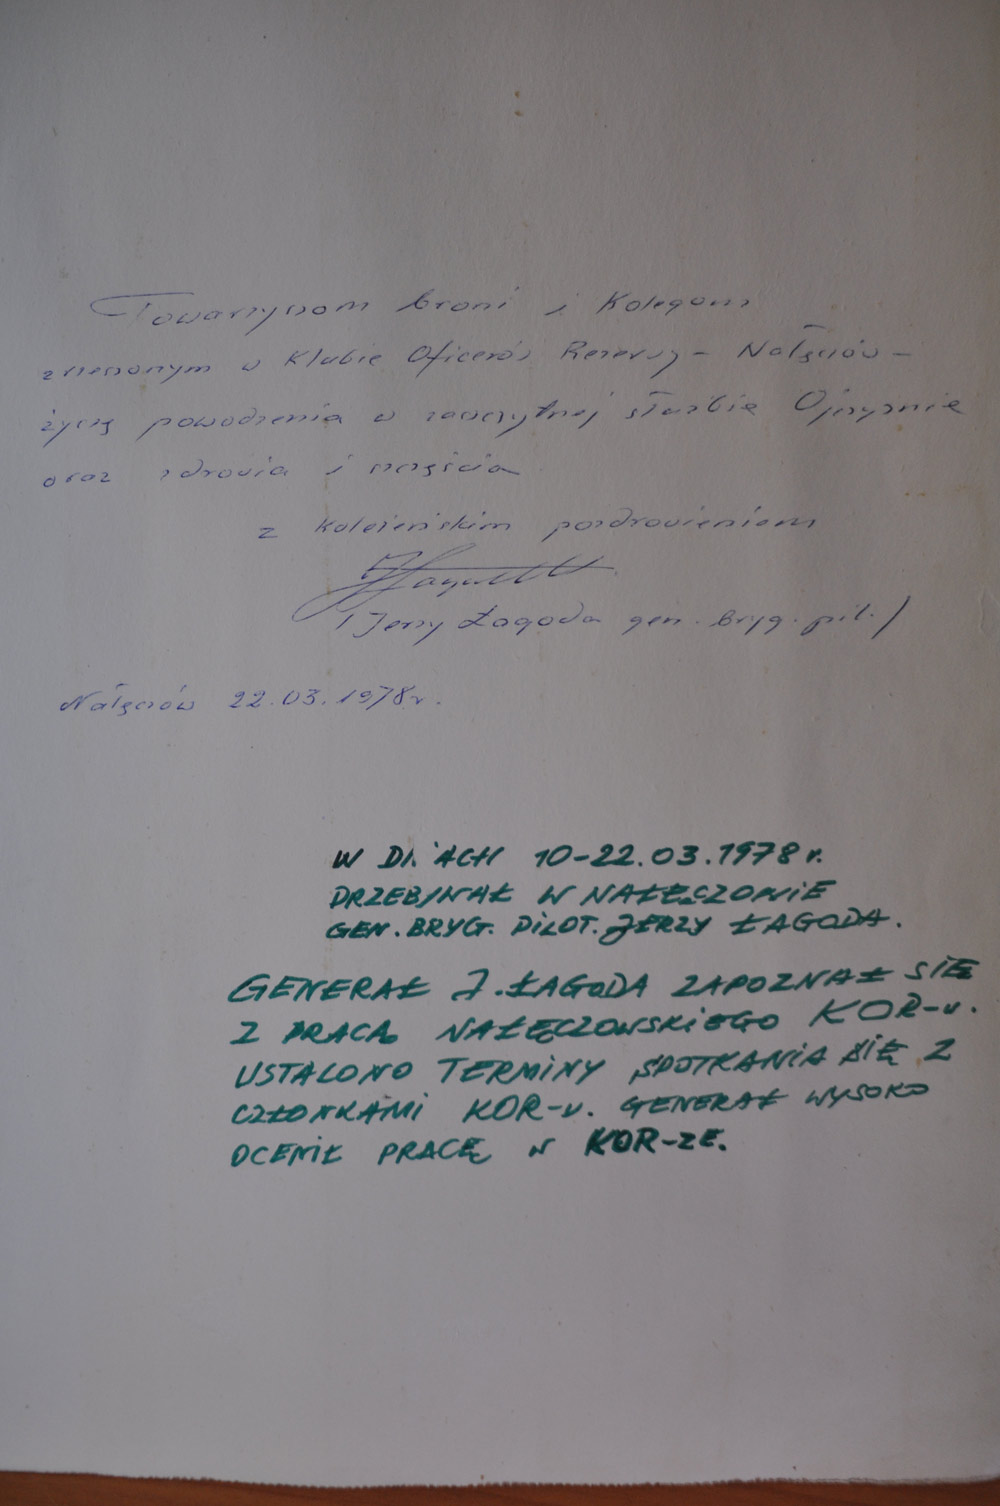 Towarzyszom broni i Kolegom
zrzeszonym w Klubie Oficerów Rezerwy - Nałęczów -
życzę powodzenia w zaszczytnej służbie Ojczyźnie
oraz zdrowia i szczęścia
z koleżeńskim pozdrowieniem
/Jerzy Łagoda gen. bryg. pil./
Nałęczów 22.03.1978 r.
W DNIACH 10-22.03.1978 r.
PRZEBYWAŁ W NAŁĘCZOWIE
GEN. BRYG. PILOT. JERZY ŁAGODA.
GENERAŁ J. ŁAGODA ZAPOZNAŁ SIĘ
Z PRACĄ NAŁĘCZOWSKIEGO KOR-u.
USTALONO TERMINY SPOTKANIA SIĘ Z
CZŁONKAMI KOR-u. GENERAŁ WYSOKO
OCENIŁ PRACĘ W KOR-ZE.